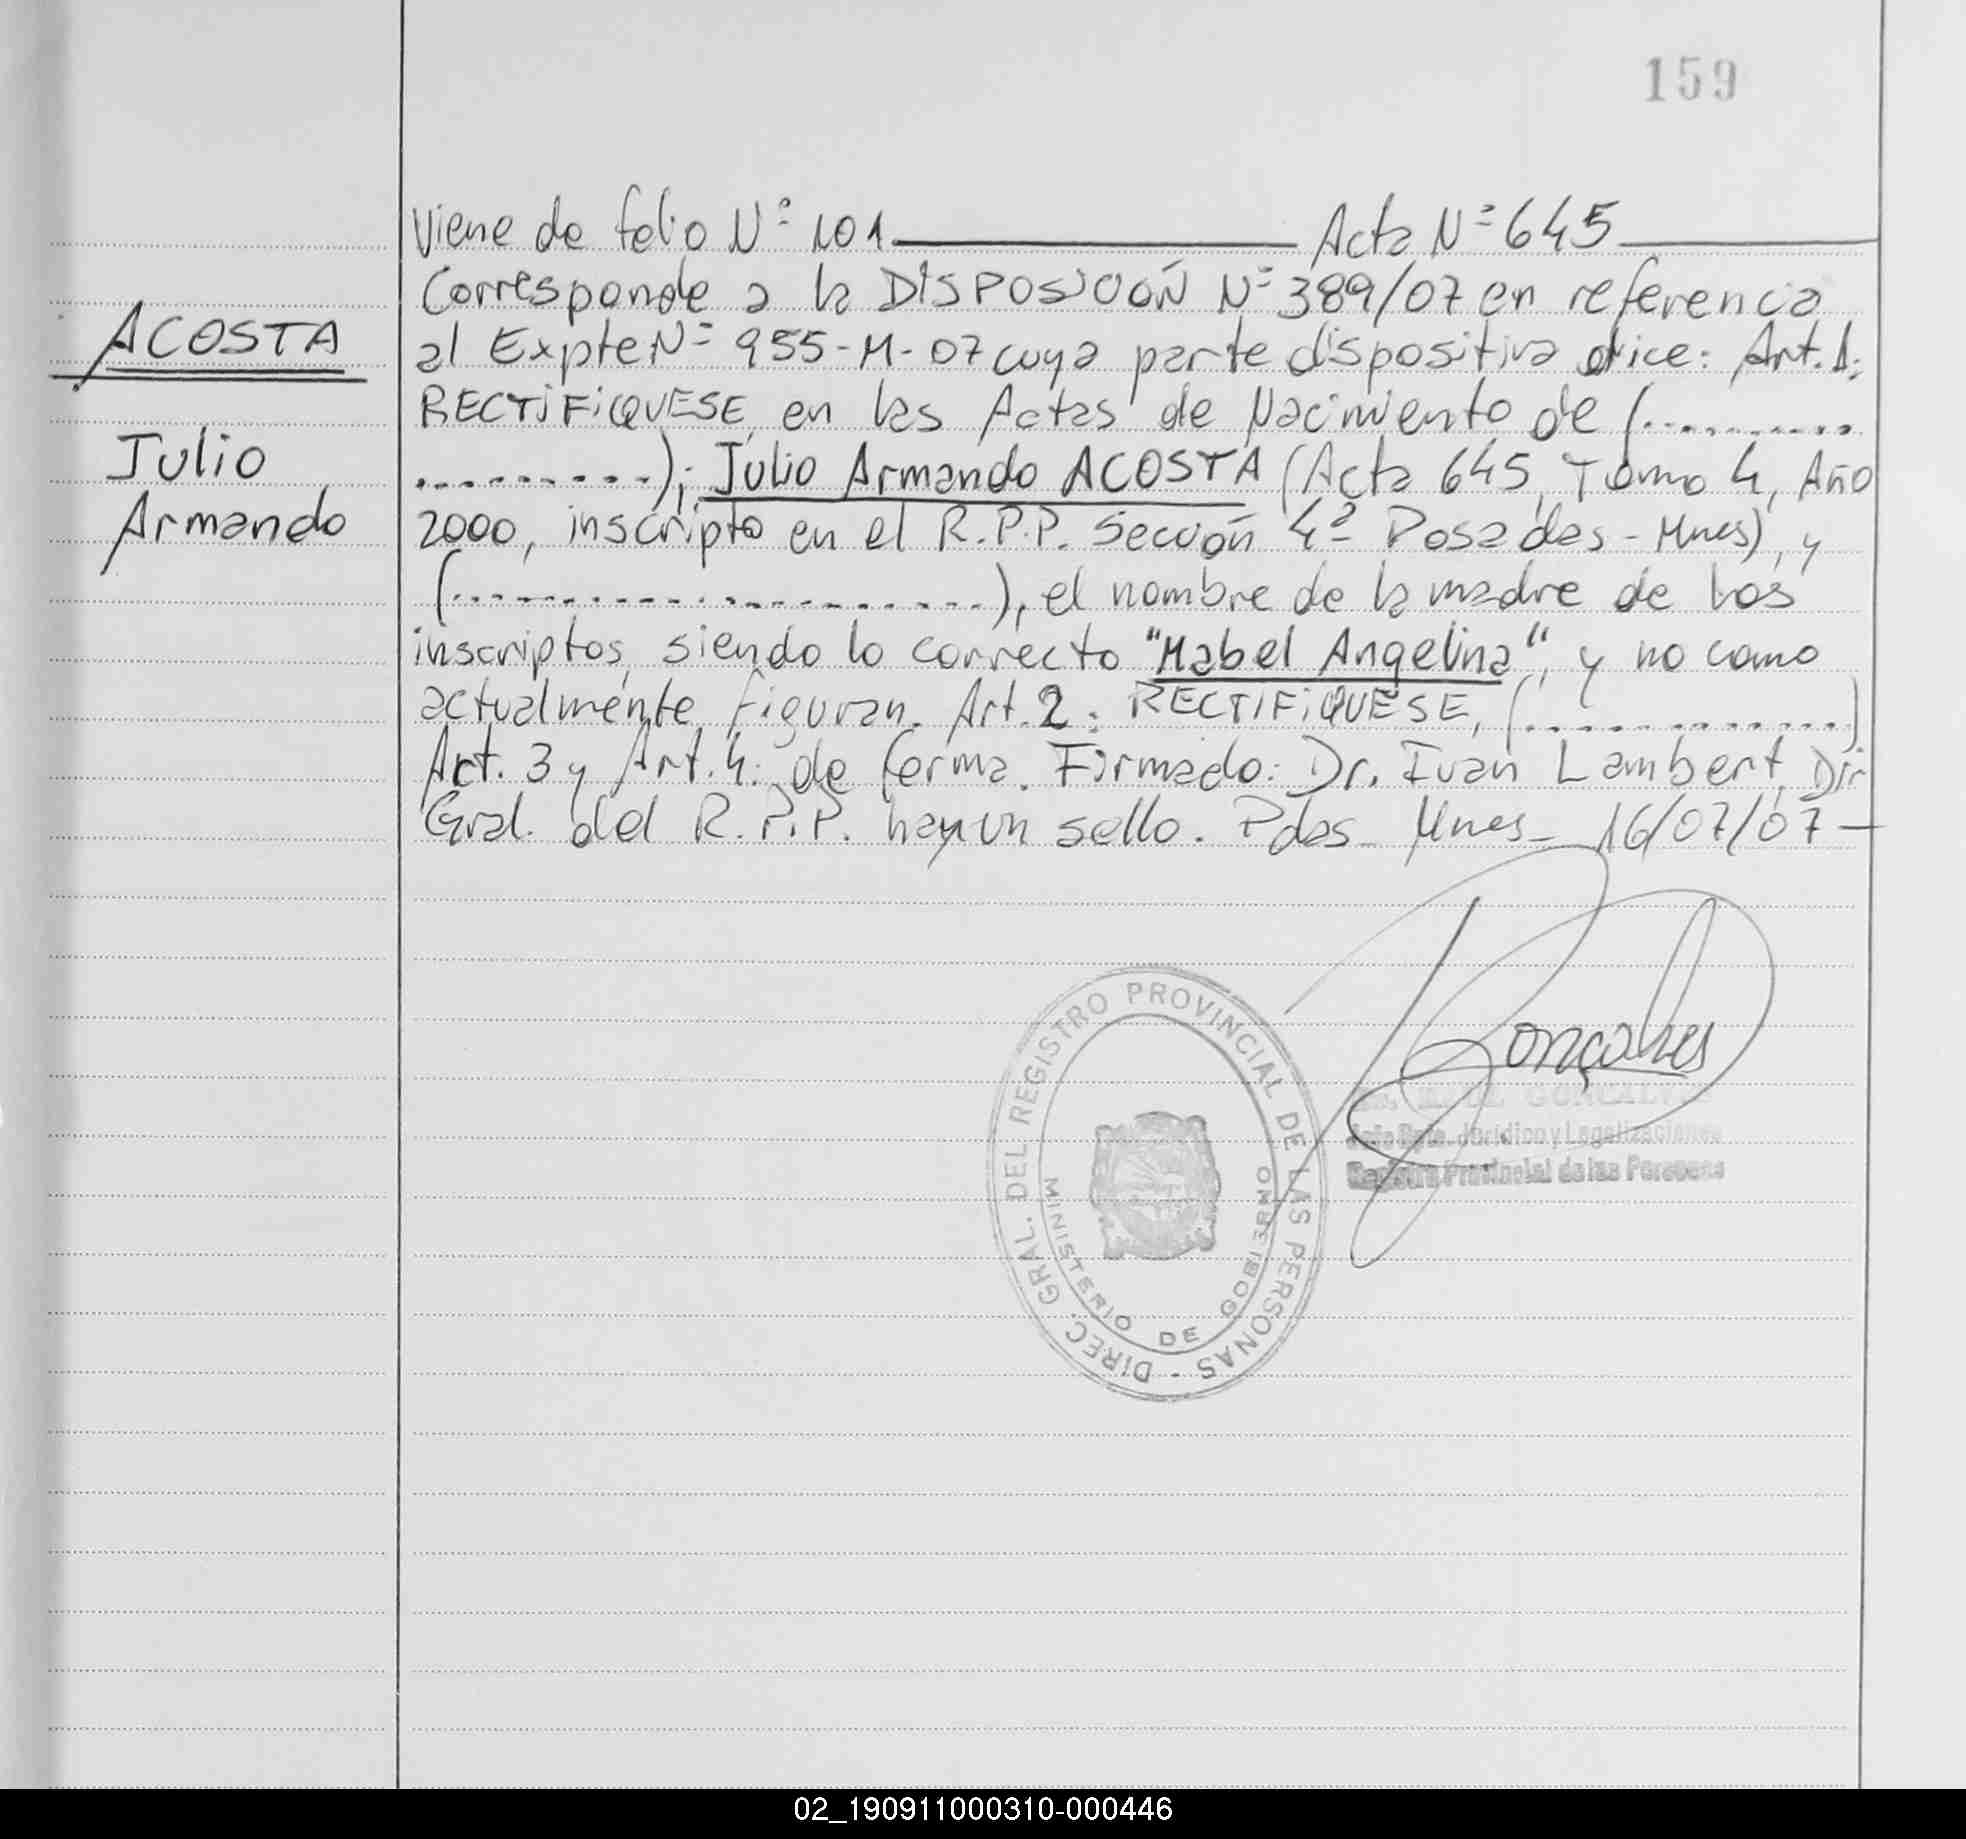 159
Viene de folio Nº 101 Acta Nº 645
Corresponde a la DISPOSICIÓN Nº 389/07 en referencia
ACOSTA
al Expte Nº 955-M-07 cuya parte dispositiva dice: Art. 1:
RECTIFIQUESE, en las Actas de Nacimiento de (..........
Julio
..........); Julio Armando ACOSTA (Acta 645, Tomo 4, Año
Armando
2000, inscripto en el R.P.P. Sección 4ª Posadas - Mnes), y
(......................), el nombre de la madre de los
inscriptos, siendo lo correcto "Mabel Angelina", y no como
actualmente figuran. Art. 2: RECTIFIQUESE, (..............)
Art. 3 y Art. 4: de forma. Firmado: Dr. Ivan Lambert, Dir
Gral. del R.P.P. hay un sello. Pdas - Mnes - 16/07/07 —
Gonçalves
DIREC. GRAL. DEL REGISTRO PROVINCIAL DE LAS PERSONAS -
MINISTERIO DE GOBIERNO
GONCALVES
Jefe Dpto. Jurídico y Legalizaciones
Registro Provincial de las Personas
02_190911000310-000446